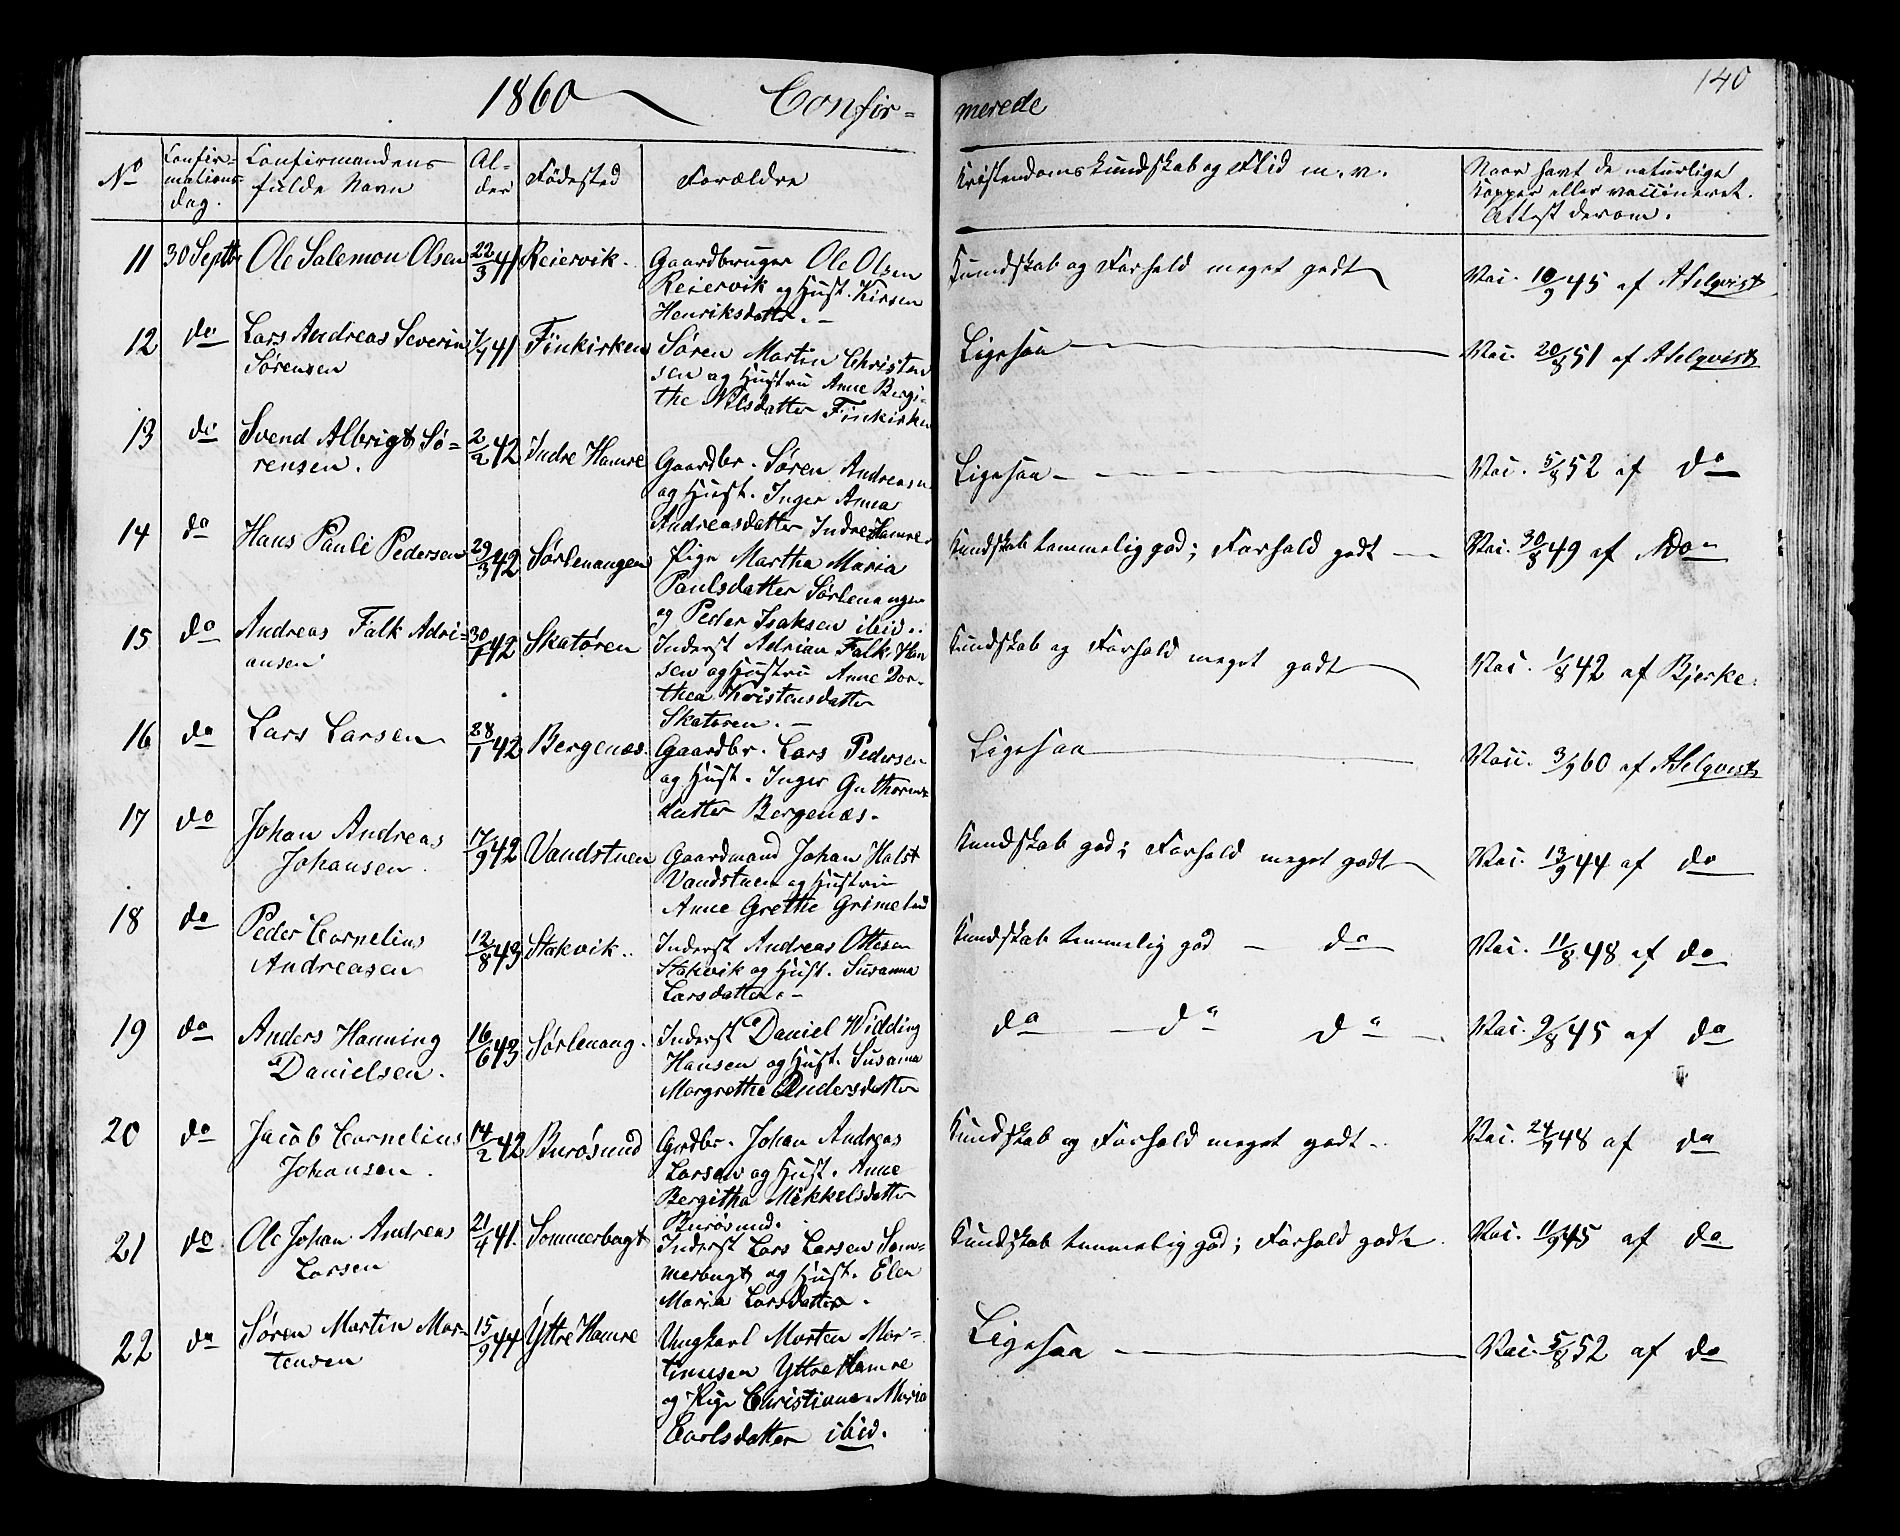 140
1860 Confir= merede
No | Confir=mations dag. | Confirmandens fulde Navn | Al-der | Fødested | Forældre | Kristendomskundskab og Flid m. v. | Naar havt de naturlige Kopper eller vaccineret. Attest derom.
11 | 30 Septb | Ole Salemon Olsen | 22/3 41 | Reiervik | Gaardbruger Ole Olsen | Kundskab og Forhold meget godt | Vac. 10/9 45 af Ahlqvist
Reiervik og Hust. Kirsen
Henriksdatter. —
12 | do | Lars Andreas Severin | 7/7 41 | Finkirken | Søren Martin Christen | Ligesaa | Vac. 20/8 51 af Ahlqvist
Sørensen | sen og Hustru Anne Bergi-
the Nilsdatter Finkirken
13 | do | Svend Albrigt Sø= | 2/2 42 | Indre Hamre | Gaardbr. Søren Andreasen | Ligesaa | Vac. 5/8 52 af do
rensen. | og Hust. Inger Anna
Andreasdatter Indre Hamre
14 | do | Hans Pauli Pedersen | 29/3 42 | Sørlenangen | Pige Martha Maria | Kundskab temmelig god; Forhold godt | Vac. 30/8 49 af do
Paulsdatter Sørlenangen
og Peder Isaksen ibid.
15 | do | Andreas Falk Adri- | 30/1 42 | Skatøren | Inderst Adrian Falk Han | Kundskab og Forhold meget godt | Vac. 1/8 42 af Bjerke.
ansen | sen og Hustru Anne Dor-
thea Kristensdatter
Skatøren. —
16 | do | Lars Larsen | 28/1 42 | Bergenæs. | Gaardbr. Lars Pedersen | Ligesaa | Vacc. 3/9 60 af Ahlqvist
og Hust. Inger Guthorms
datter Bergenæs.
17 | do | Johan Andreas | 17/9 42 | Vandstuen | Gaardmand Johan Holst | Kundskab god; Forhold meget godt | Vac. 13/9 44 af do
Johansen. | Vandstuen og Hustru
Anne Grethe Grimelund
18 | do | Peder Cornelius | 12/8 43 | Stakvik.. | Inderst Andreas Ottesen | Kundskab temmelig god — do | Vac. 11/8 48 af do
Andreasen | Stakvik og Hust. Susanna
Larsdatter. —
19 | do | Anders Hanning | 16/6 43 | Sørlenang. | Inderst Daniel Widding | do — do do | Vac. 9/8 45 af do
Danielsen. | Hansen og Hust. Susanna
Margrethe Andersdatter
20 | do | Jacob Cornelius | 14/2 42 | Burøsund | Grdbr. Johan Andreas | Kundskab og Forhold meget godt | Vac. 24/7 48 af do
Johansen. | Larsen og Hust. Anne
Bergitha Mikkelsdatter
Burøsund.
21 | do | Ole Johan Andreas | 21/4 41. | Sommerbugt | Inderst Lars Larsen Som= | Kundskab temmelig god; Forhold godt. | Vac. 11/9 45 af do
Larsen | merbugt og Hust. Elen
Maria Larsdatter.
22 | do | Søren Martin Mor- | 15/9 44 | Yttre Hamre | Ungkarl Morten Mor= | Ligesaa | Vac. 5/8 52 af do
tensen | timesen Yttre Hamre
og Pige Christiane Maria
Carlsdatter ibid.